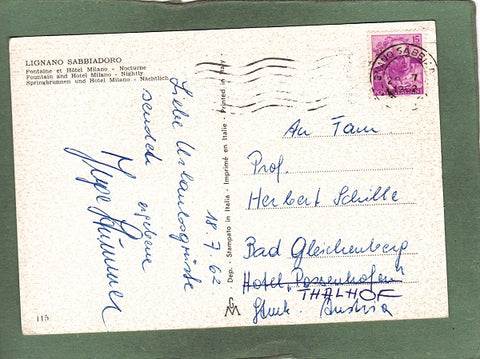 LIGNANO SABBIADORO
Fontaine et Hôtel Milano - Nocturne
Fountain and Hotel Milano - Nightly
Springbrunnen und Hotel Milano - Nächtlich
Liebe Urlaubsgrüsse
senden
ergebene
18.7.62
Dep. - Stampato in Italia - Imprimé en Italie - Printed in Italy -
15
An Fam.
Prof.
Herbert Schille
Bad Gleichenberg
Hotel Possenhofen
THALHOF
Stmk. Austria
115